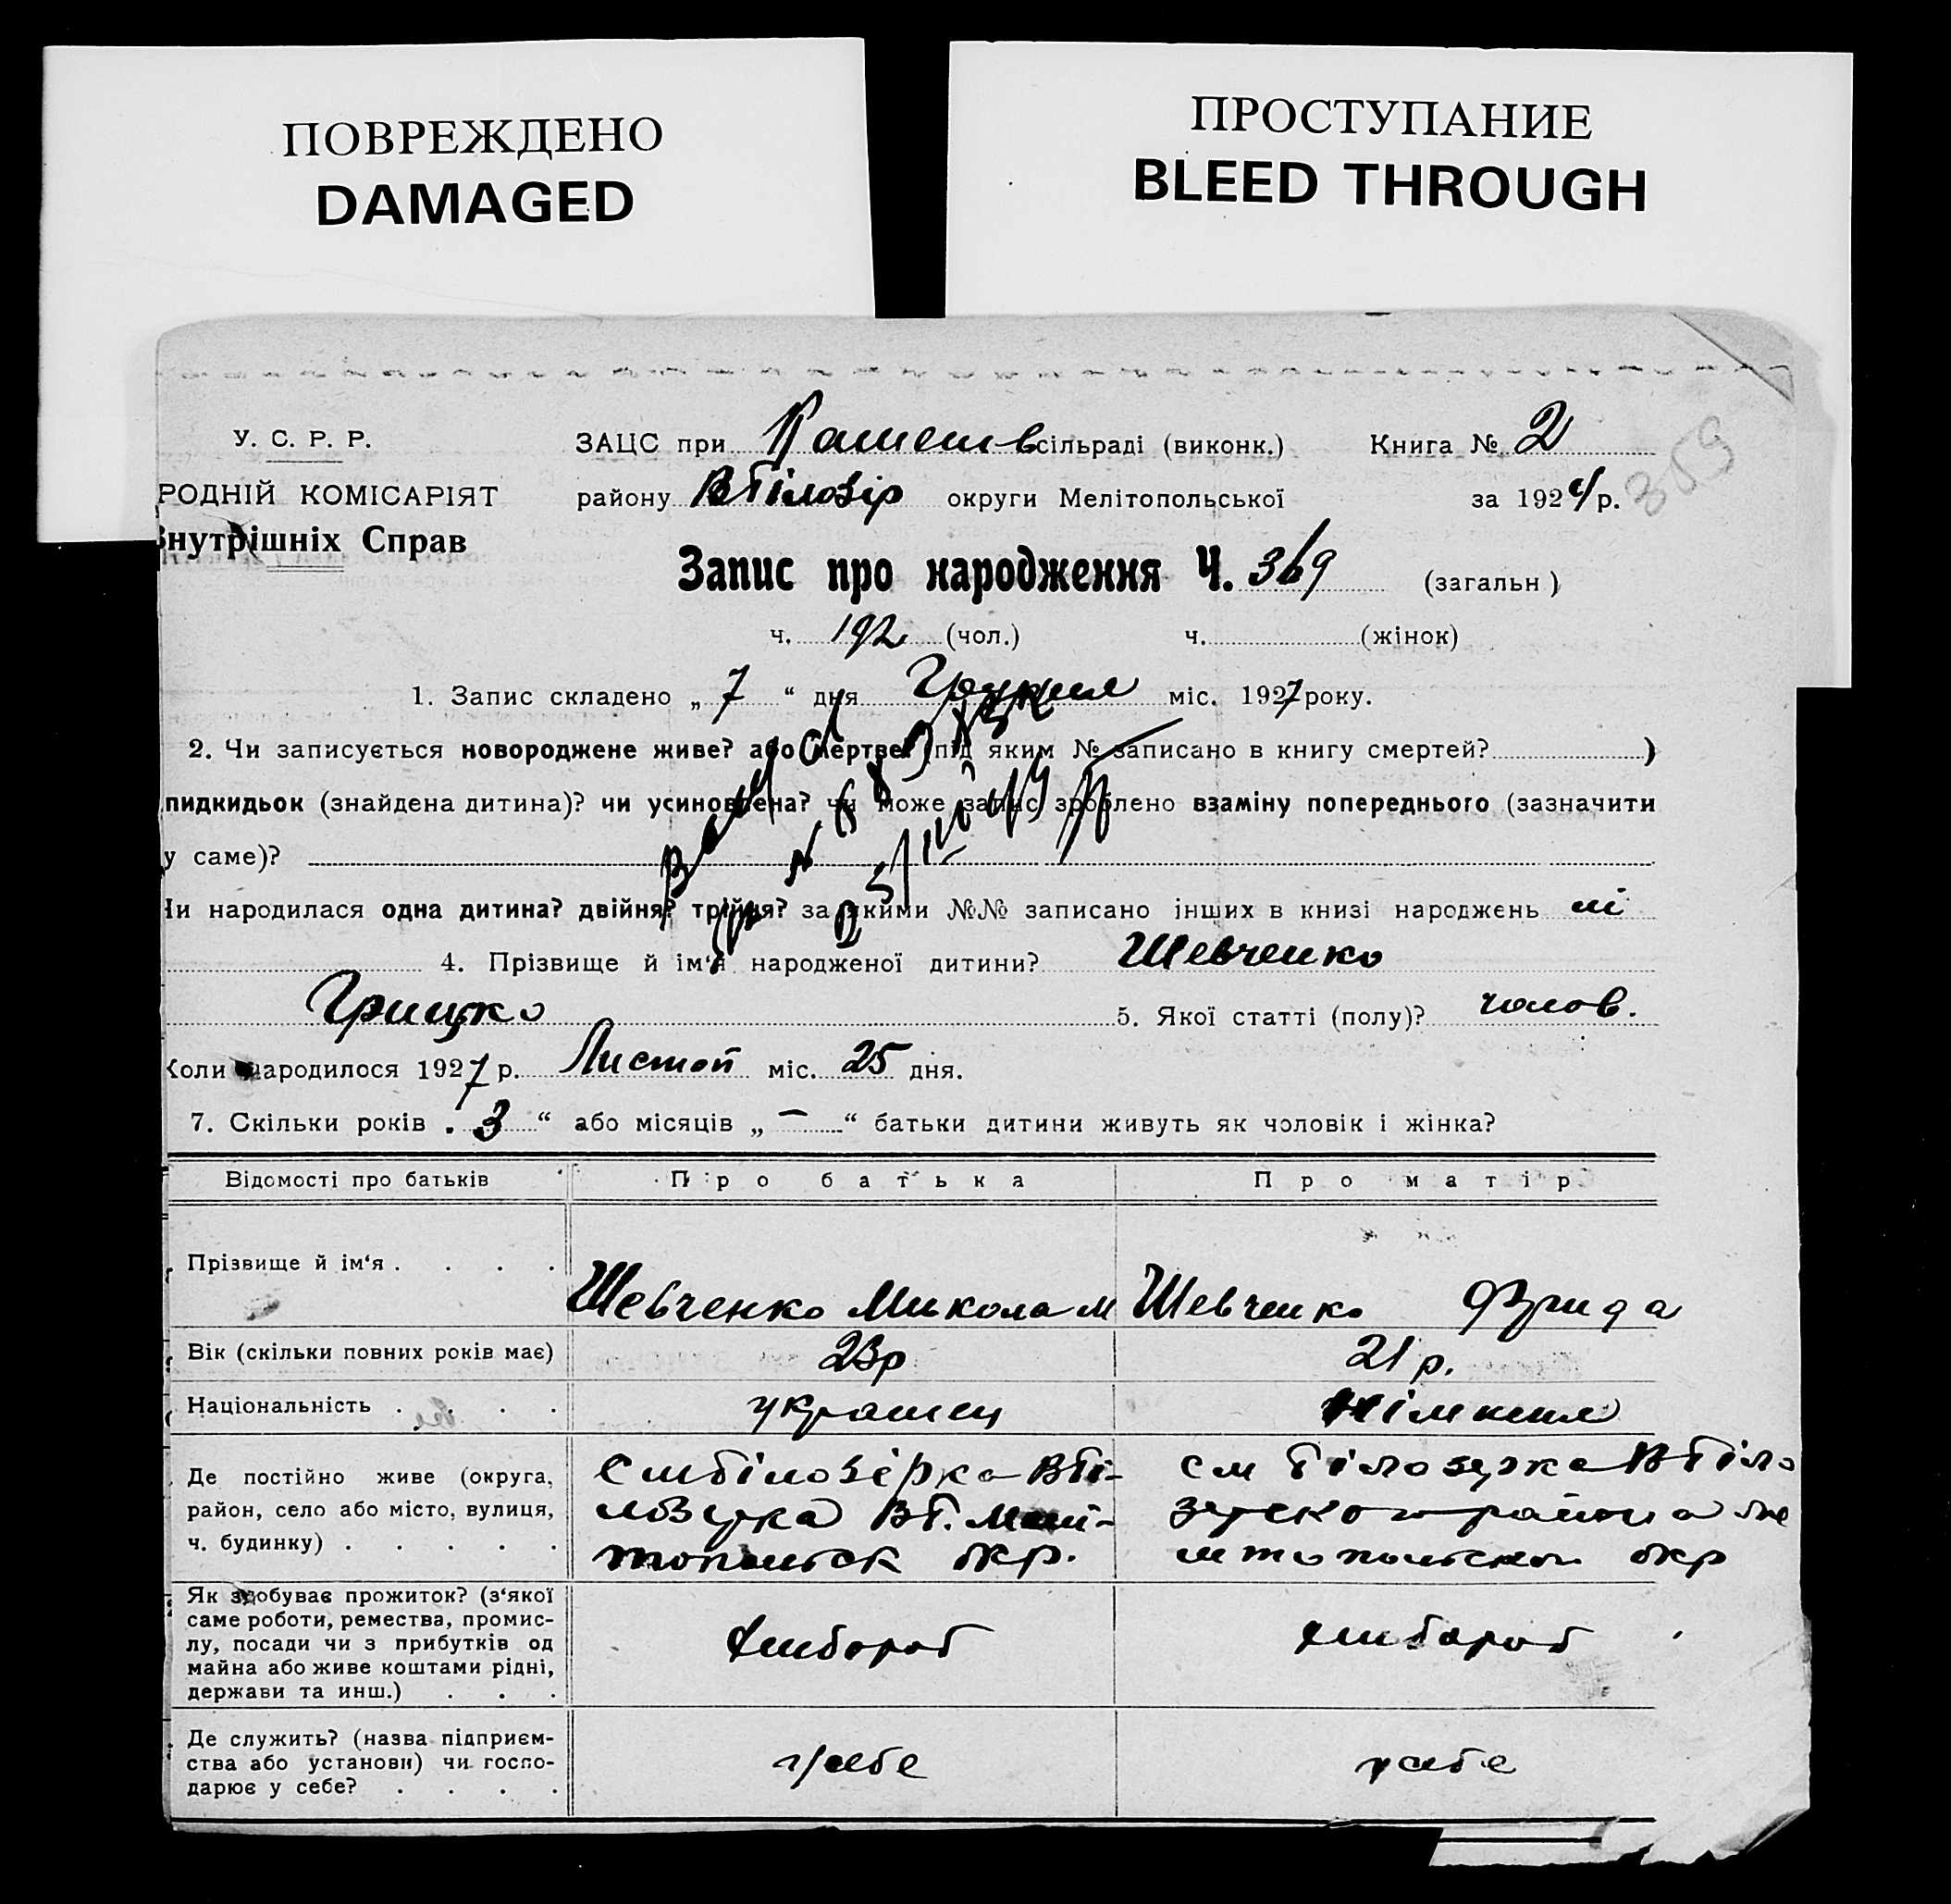 ПОВРЕЖДЕНО
DAMAGED
ПРОСТУПАНИЕ
BLEED THROUGH
У. С. Р. Р.
РОДНІЙ КОМІСАРІЯТ
Внутрішніх Справ
ЗАЦС при сільраді (виконк.) Книга № 2
району ВБілозір округи Мелітопольської за 192 р.
359
Запис про народження Ч. 369 (загальн)
ч. 192 (чол.) ч. (жінок)
1. Запис складено „ 7 “ дня Грудня міс. 1927 року.
2. Чи записується новороджене живе? або мертве? (під яким № записано в книгу смертей? )
пидкидьок (знайдена дитина)? чи усиновлена? чи може запис зроблено взаміну попереднього (зазначити
у саме)?
Чи народилася одна дитина? двійня? трійня? за якими №№ записано інших в книзі народжень ні
4. Прізвище й ім‘я народженої дитини? Шевченко
Грицко 5. Якої статті (полу)? чолов.
Коли народилося 1927 р. Листоп міс. 25 дня.
7. Скільки років „ 3 “ або місяців „ — “ батьки дитини живуть як чоловік і жінка?
Відомості про батьків Про батька Про матір
Прізвище й ім‘я . . . . Шевченко Микола М Шевченко Фрида
Вік (скільки повних років має) 23р 21р.
Національність . . . . украинец німкеня
Де постійно живе (округа, см Білозерка ВБіло
район, село або місто, вулиця,
ч. будинку) . . . . . окр. окр
Як здобуває прожиток? (з‘якої
саме роботи, ремества, промис-
лу, посади чи з прибутків од хлібороб хлібороб
майна або живе коштами рідні,
держави та инш.) . . .
Де служить? (назва підприєм-
ства або установи) чи госпо- у себе у себе
дарює у себе? . . . .